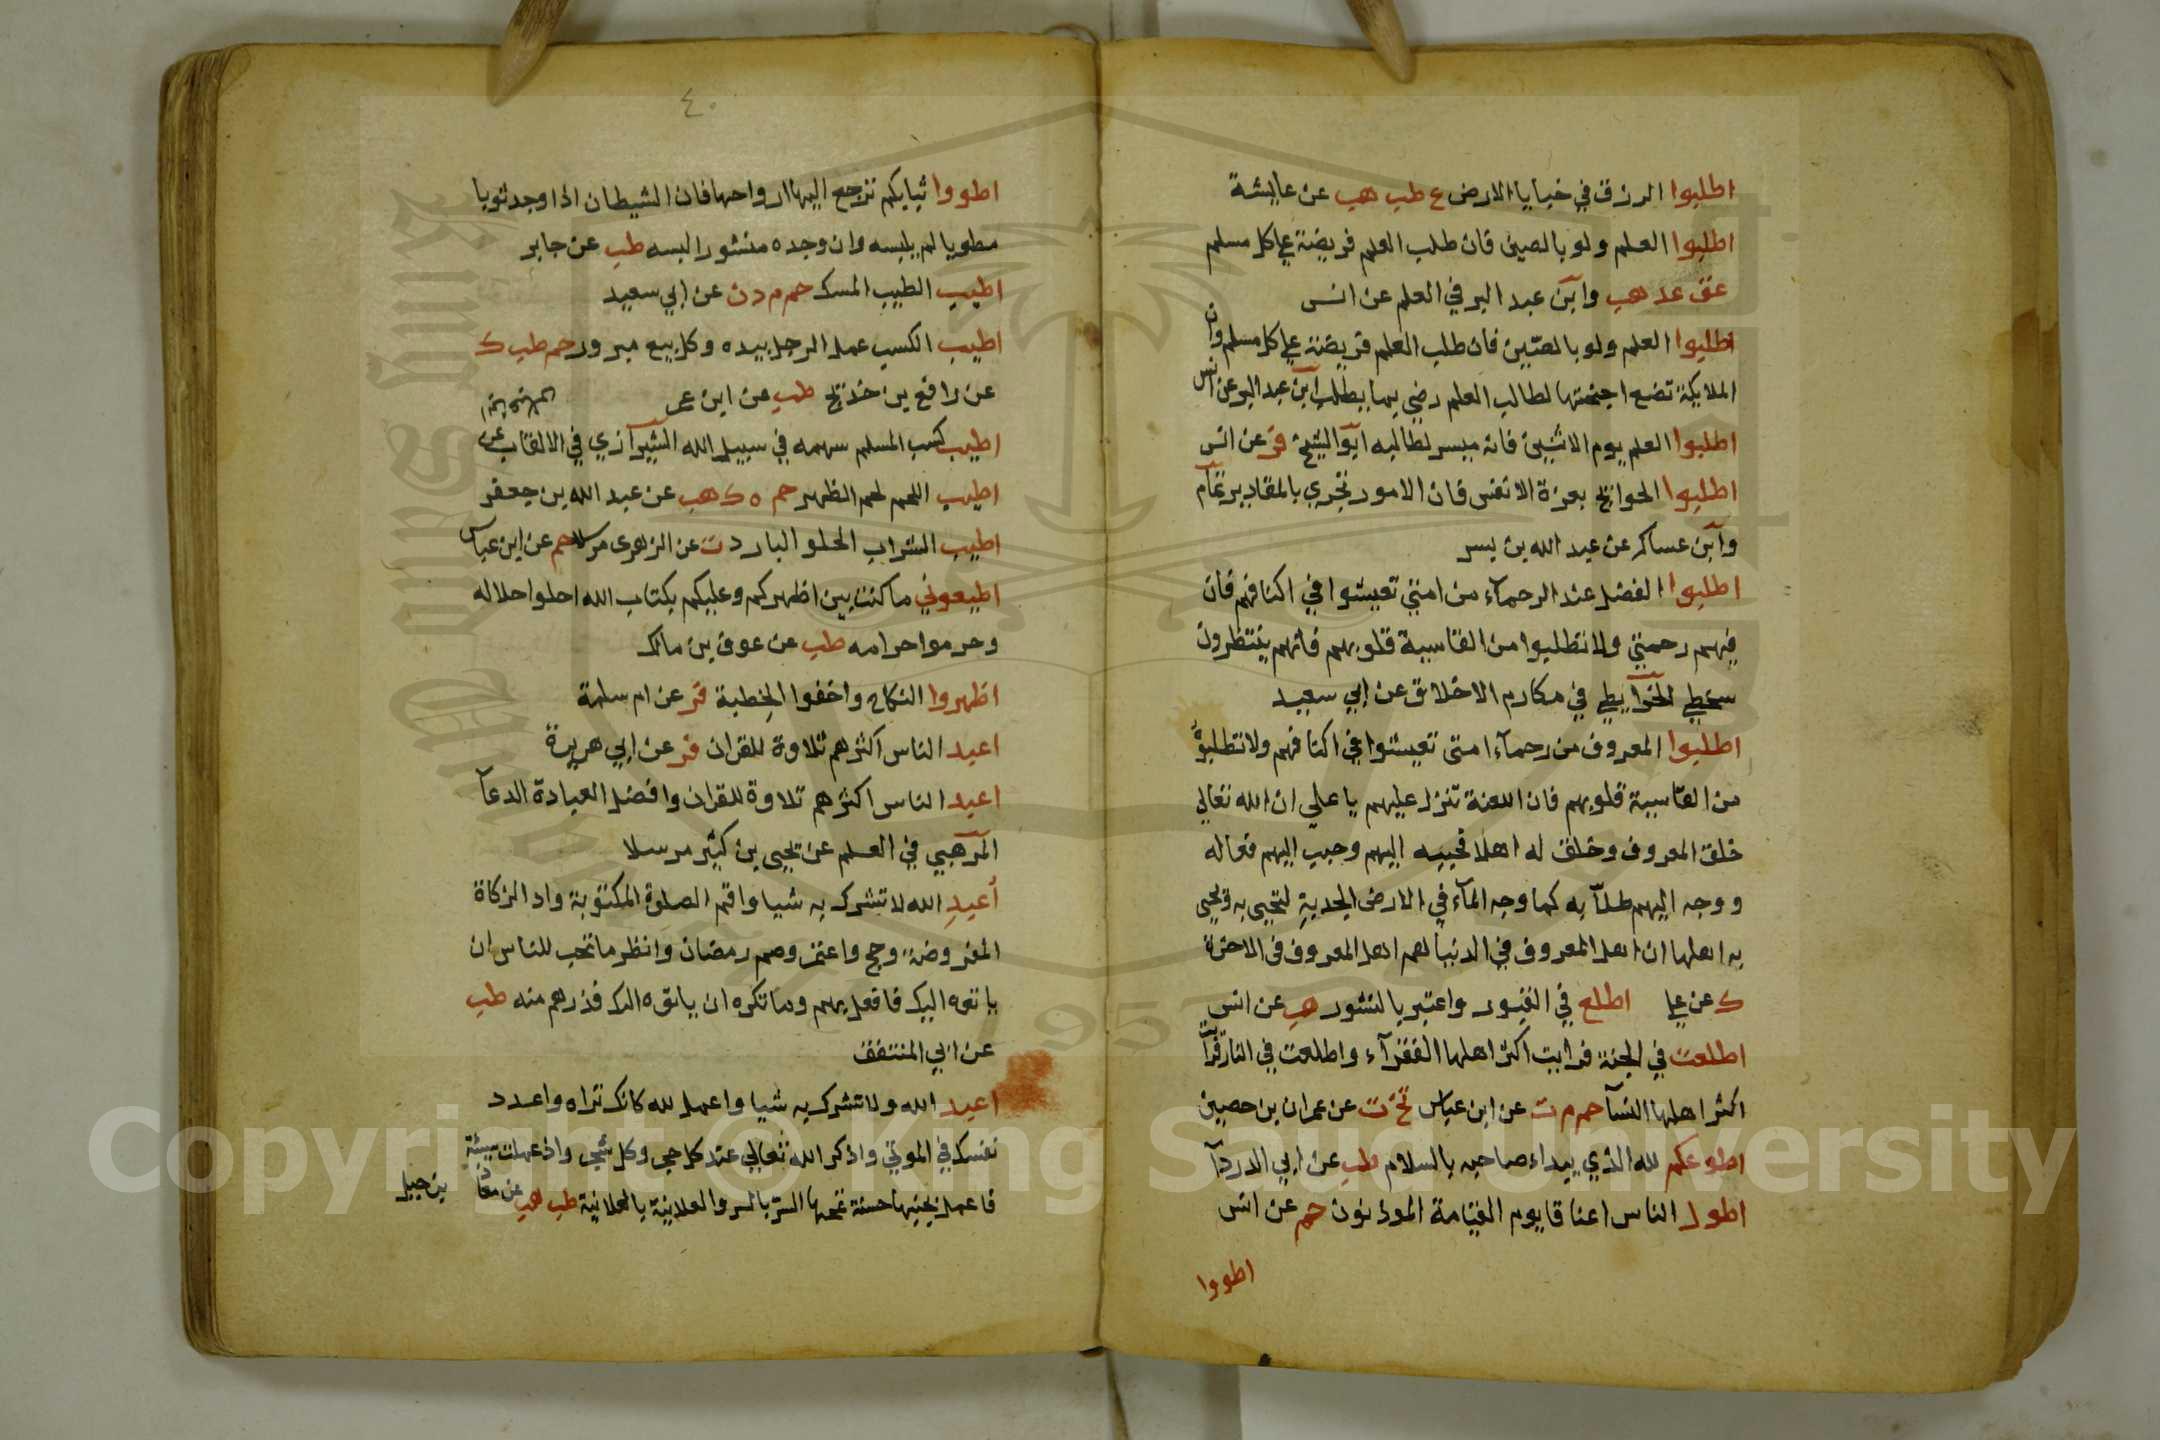 اطلبوا الرزق في خبايا الارض ع طب هب عن عايشة
اطلبوا العلم ولو بالصين فان طلب العلم فريضة علي كل مسلم
عق عد هب وابن عبد البر في العلم عن انس
اطلبوا العلم ولو بالصين فان طلب العلم فريضة علي كل مسلم وان
الملايكة تضع اجنحتها لطالب العلم رضي بما يطلب ابن عبد البر عن انس
اطلبوا العلم يوم الاثنين فانه ميسر لطالبه ابو الشيخ فر عن انس
اطلبوا الحوايج بعزة الانفس فان الامور تجري بالمقادير تمام
وابن عساكر عن عبد الله بن بسر
اطلبوا الفضل عند الرحمآء من امتي تعيشوا في اكنافهم فان
فيهم رحمتي ولا تطلبوا من القاسية قلوبهم فانهم ينتظرون
سخطي الخرايطي في مكارم الاخلاق عن ابي سعيد
اطلبوا المعروف من رحمآء امتي تعيشوا في اكنافهم ولا تطلبوه
من القاسية قلوبهم فان اللعنة تنزل عليهم يا علي ان الله تعالي
خلق المعروف وخلق له اهلا فحببه اليهم وحبب اليهم فعاله
ووجه اليهم طلابه كما وجه المآء في الارض الجدبة لتحيي به ويحيي
به اهلها ان اهل المعروف في الدنيا هم اهل المعروف في الاخرة
ك عن علي اطلع في القبور واعتبر بالنشور هب عن انس
اطلعت في الجنة فرايت اكثر اهلها الفقرآء واطلعت في النار فرايت
اكثر اهلها النسآ حم م ت عن ابن عباس خ ت عن عمران بن حصين
اطوعكم لله الذي يبداء صاحبه بالسلام طب عن ابي الدردآ
اطول الناس اعناقا يوم القيامة الموذنون حم عن انس
اطووا
٤٠
اطووا ثيابكم ترجع اليها ارواحها فان الشيطان اذا وجد ثوبا
مطويا لم يلبسه وان وجده منشورا لبسه طب عن جابر
اطيب الطيب المسك حم م د ن عن ابي سعيد
اطيب الكسب عمل الرجل بيده وكل بيع مبرور حم طب ك
عن رافع بن خديج طب عن ابن عمر
اطيب كسب المسلم سهمه في سبيل الله الشيرازي في الالقاب عن
اطيب اللحم لحم الظهر حم ه ك هب عن عبد الله بن جعفر
اطيب الشراب الحلو البارد ت عن الزهري مرسلا حم عن ابن عباس
اطيعوني ما كنت بين اظهركم وعليكم بكتاب الله احلوا حلاله
وحرموا حرامه طب عن عوف بن مالك
اظهروا النكاح واخفوا الخطبة فر عن ام سلمة
اعبد الناس اكثرهم تلاوة للقران فر عن ابي هريرة
اعبد الناس اكثرهم تلاوة للقران وافضل العبادة الدعآ
المرهبي في العلم عن يحيي بن كثير مرسلا
اعبد الله لا تشرك به شيا واقم الصلوة المكتوبة واد الزكاة
المفروضة وحج واعتمر وصم رمضان وانظر ما تحب للناس ان
ياتوه اليك فافعل بهم وما تكره ان ياتوه اليك فذرهم منه طب
عن ابي المنتفق
اعبد الله ولا تشرك به شيا واعمل لله كانك تراه واعدد
نفسك في الموتي واذكر الله تعالي عند كل حجر وكل شجر واذ عملت سيئة
فاعمل بجنبها حسنة تمحها السر بالسر والعلانية بالعلانية طب هب عن معاذ بن جبل